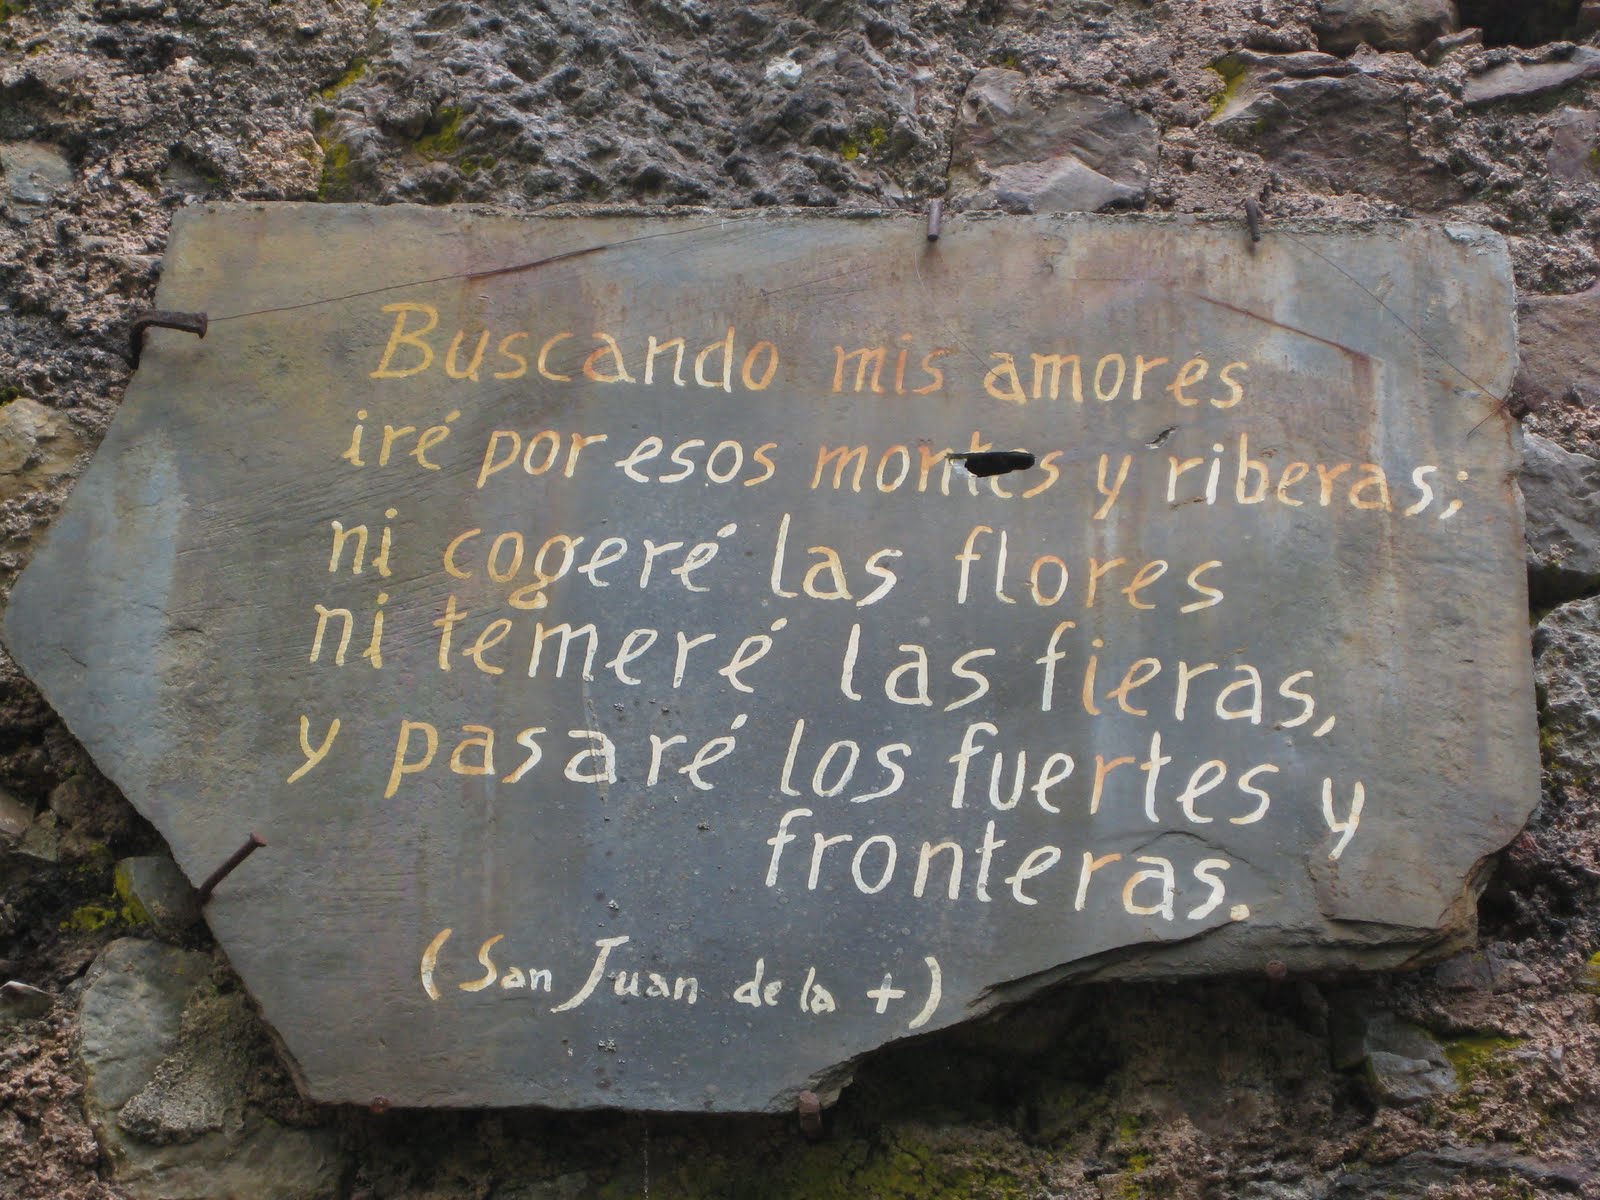 Buscando mis amores
iré por esos montes y riberas;
ni cogeré las flores
ni temeré las fieras,
y pasaré los fuertes y
fronteras.
(San Juan de la +)